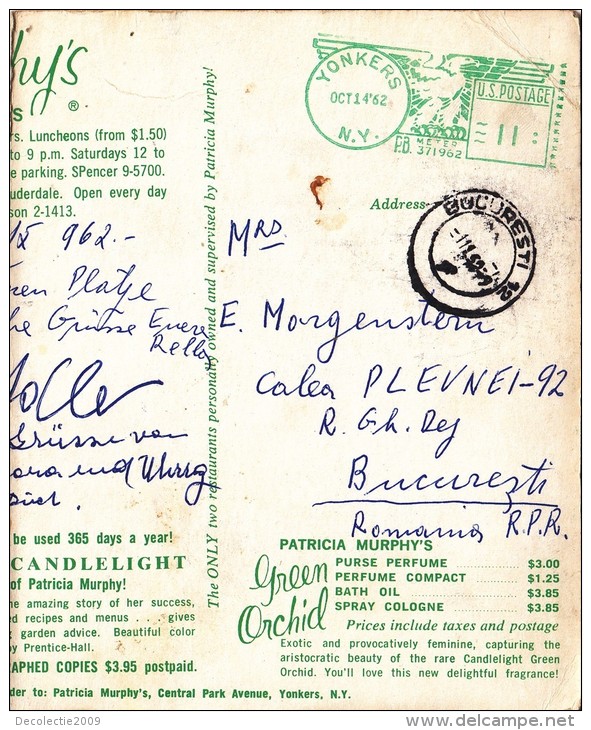 phy's
S ®
rs. Luncheons (from $1.50)
to 9 p.m. Saturdays 12 to
e parking. SPencer 9-5700.
uderdale. Open every day
son 2-1413.
962.-
Platze
Grüsse Euere
Rella
Grüsse von
und
be used 365 days a year!
CANDLELIGHT
of Patricia Murphy!
he amazing story of her success,
d recipes and menus . . . gives
garden advice. Beautiful color
y Prentice-Hall.
RAPHED COPIES $3.95 postpaid.
der to: Patricia Murphy's, Central Park Avenue, Yonkers, N.Y.
The ONLY two restaurants personally owned and supervised by Patricia Murphy!
YONKERS
OCT 14 '62
N.Y.
U.S. POSTAGE
11
P.B. METER
371962
Address
BUCURESTI 12
Mrs
E. Morgenstern
Calea PLEVNEI-92
R. Gh. Dej
București
Romania R.P.R.
PATRICIA MURPHY'S
Green
Orchid
PURSE PERFUME $3.00
PERFUME COMPACT $1.25
BATH OIL $3.85
SPRAY COLOGNE $3.85
Prices include taxes and postage
Exotic and provocatively feminine, capturing the
aristocratic beauty of the rare Candlelight Green
Orchid. You'll love this new delightful fragrance!
Decolectie2009
delcampe.net